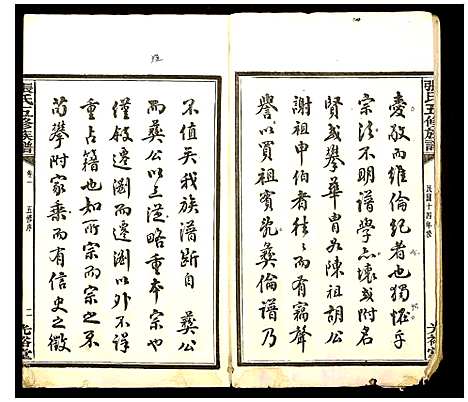 張氏五修族譜
民國十四年修
光裕堂
愛敬而維倫紀者也獨怪乎
宗法不明譜學亦壞或附名
賢或攀華胄如陳祖胡公
謝祖申伯者往往而有竊聲
譽以買祖賓死彝倫譜乃
不值矣我族譜斷自 彝公
而彝公以上從略重本宗也
僅敘遷瀏而遷瀏以外不詳
重占籍也所宗而宗之不
苟攀附家乘而有信史之徵
張氏五修族譜
卷一
五修序
二
光裕堂